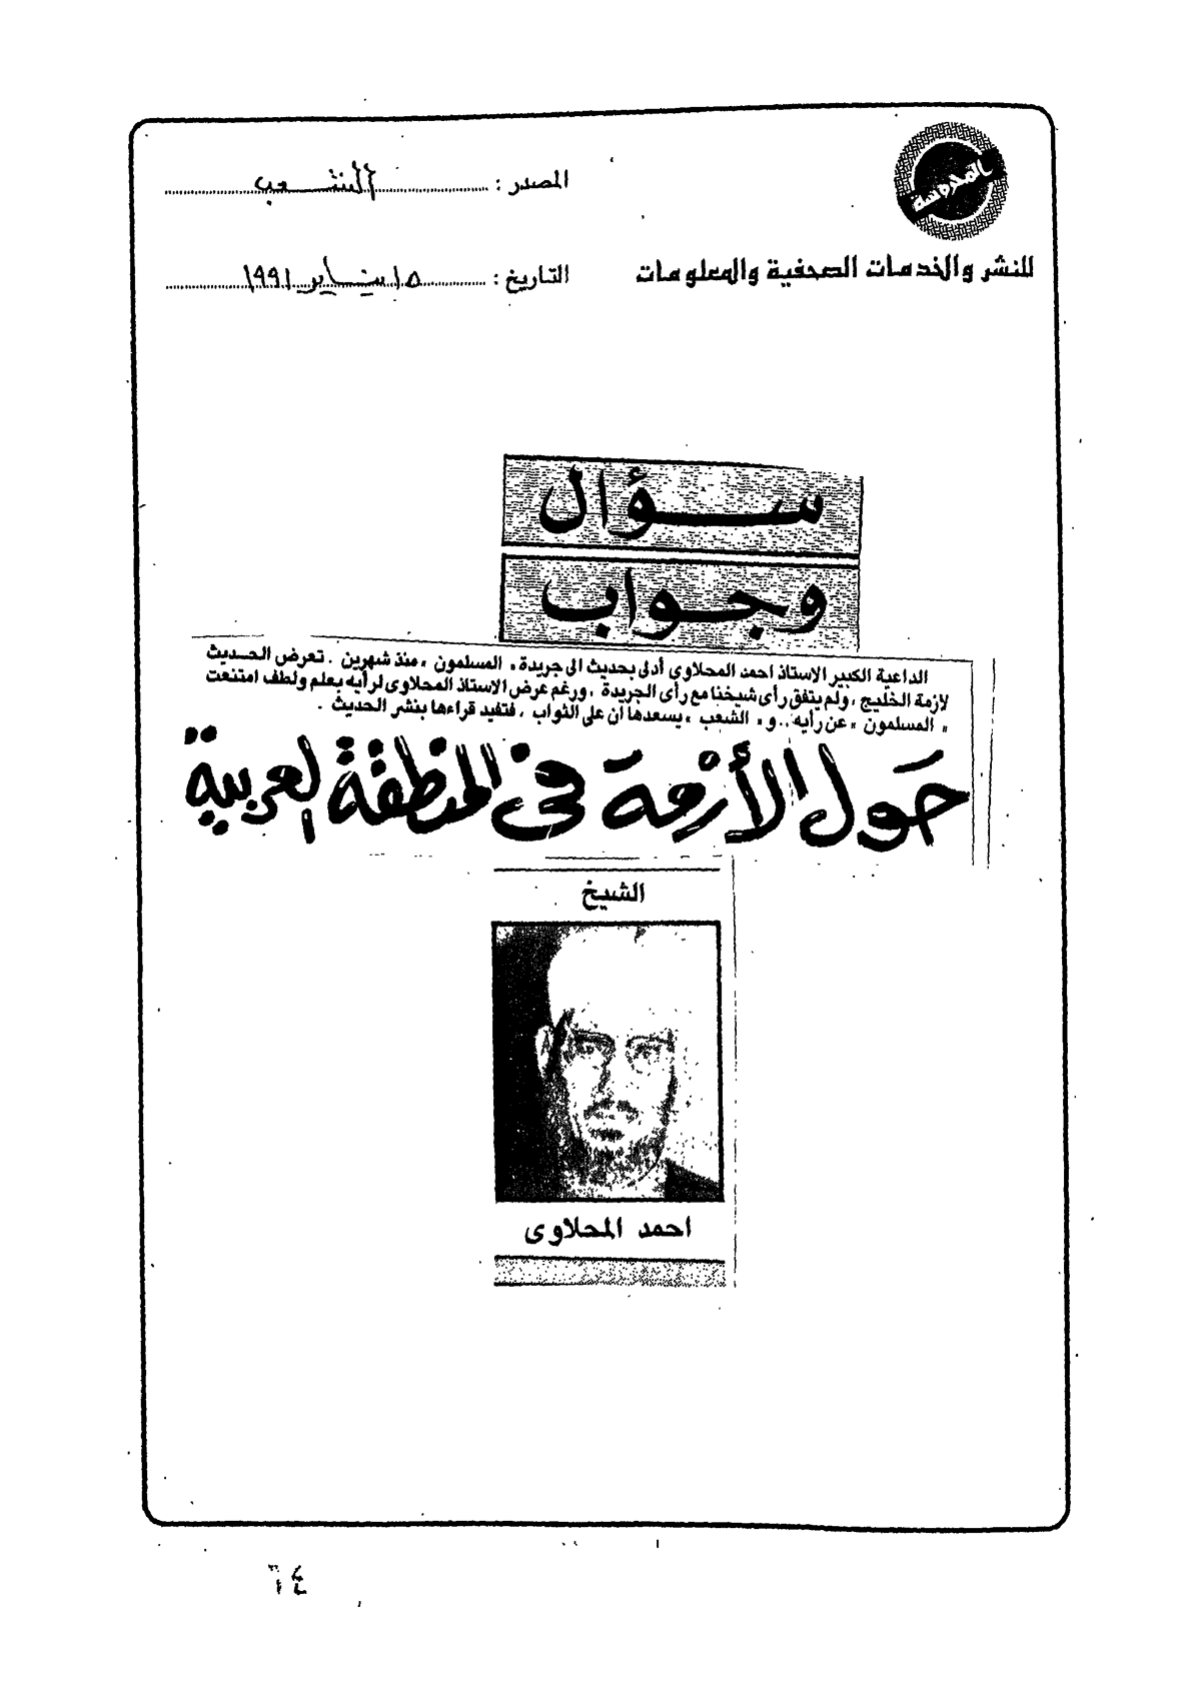 المدوسة
للنشر والخدمات الصحفية والمعلومات
المصدر : الشعب
التاريخ : ١٥ يناير ١٩٩١
سؤال
وجواب
الداعية الكبير الاستاذ احمد المحلاوى أدلى بحديث الى جريدة « المسلمون » منذ شهرين . تعرض الحديث
لازمة الخليج ، ولم يتفق رأى شيخنا مع رأى الجريدة ، ورغم عرض الاستاذ المحلاوى لرأيه بعلم ولطف امتنعت
« المسلمون » عن رأيه .. و « الشعب » يسعدها ان على الثواب ، فتفيد قراءها بنشر الحديث .
حول الأزمة فى المنطقة العربية
الشيخ
احمد المحلاوى
٦٤